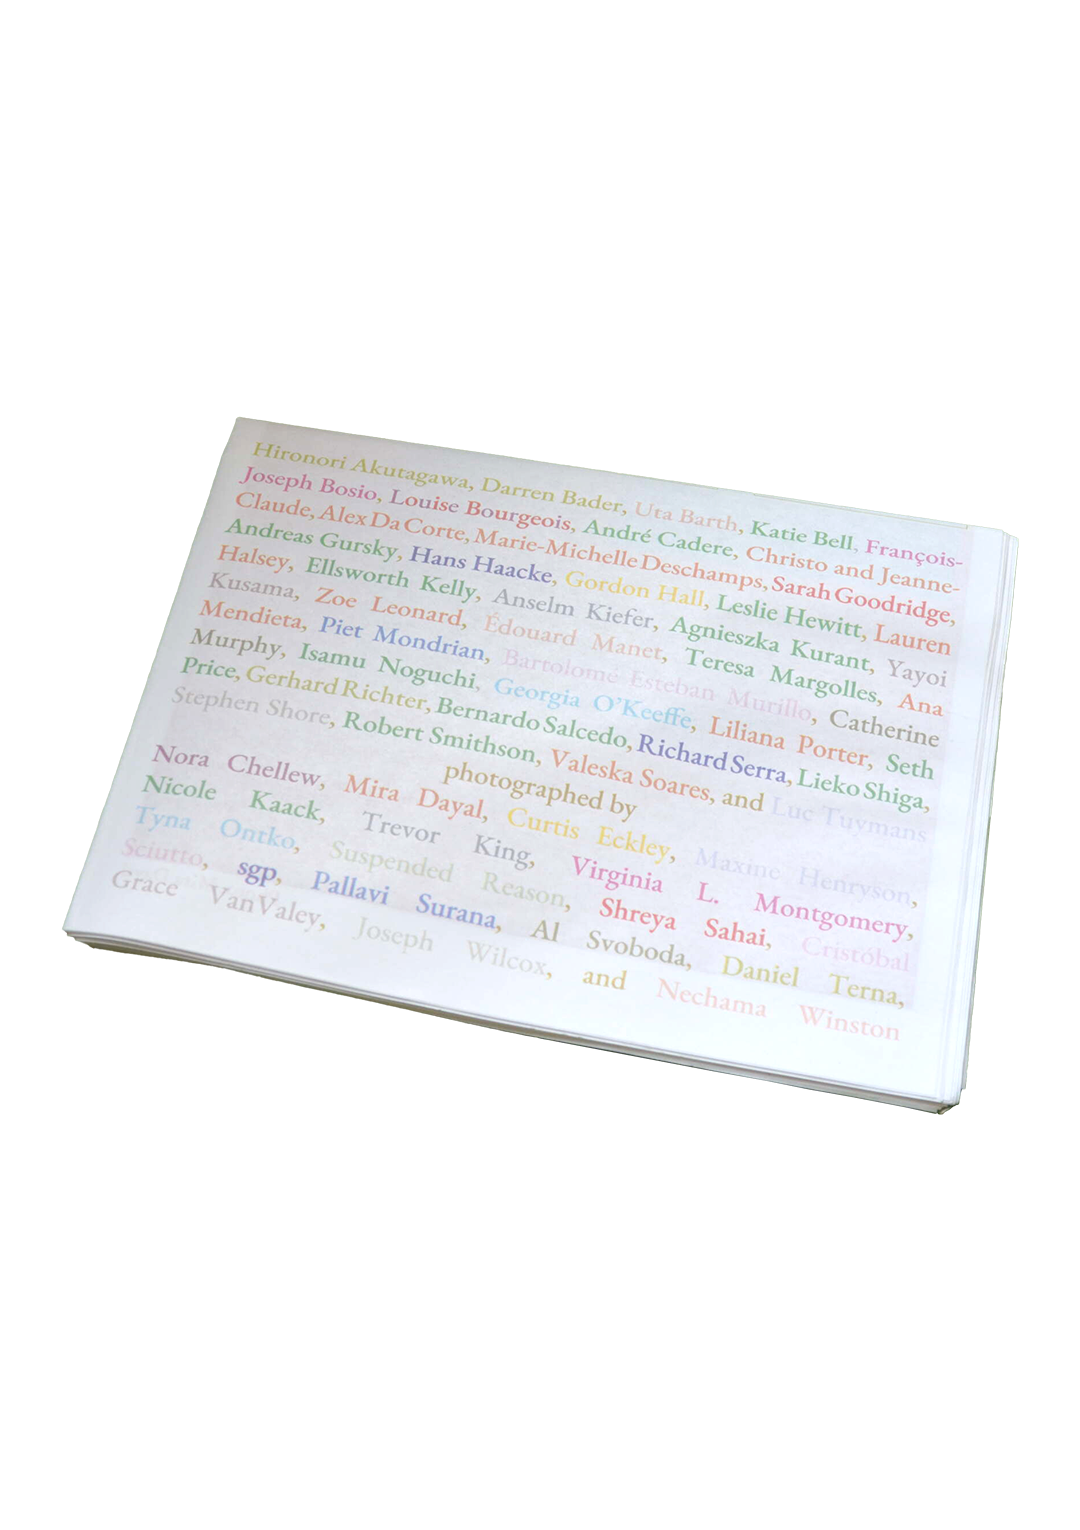 Hironori Akutagawa, Darren Bader, Uta Barth, Katie Bell, François-
Joseph Bosio, Louise Bourgeois, André Cadere, Christo and Jeanne-
Claude, Alex Da Corte, Marie-Michelle Deschamps, Sarah Goodridge,
Andreas Gursky, Hans Haacke, Gordon Hall, Leslie Hewitt, Lauren
Halsey, Ellsworth Kelly, Anselm Kiefer, Agnieszka Kurant, Yayoi
Kusama, Zoe Leonard, Édouard Manet, Teresa Margolles, Ana
Mendieta, Piet Mondrian, Bartolomé Esteban Murillo, Catherine
Murphy, Isamu Noguchi, Georgia O'Keeffe, Liliana Porter, Seth
Price, Gerhard Richter, Bernardo Salcedo, Richard Serra, Lieko Shiga,
Stephen Shore, Robert Smithson, Valeska Soares, and Luc Tuymans
photographed by
Nora Chellew, Mira Dayal, Curtis Eckley, Maxine Henryson,
Nicole Kaack, Trevor King, Virginia L. Montgomery,
Tyna Ontko, Suspended Reason, Shreya Sahai, Cristóbal
Sciutto, sgp, Pallavi Surana, Al Svoboda, Daniel Terna,
Grace VanValey, Joseph Wilcox, and Nechama Winston